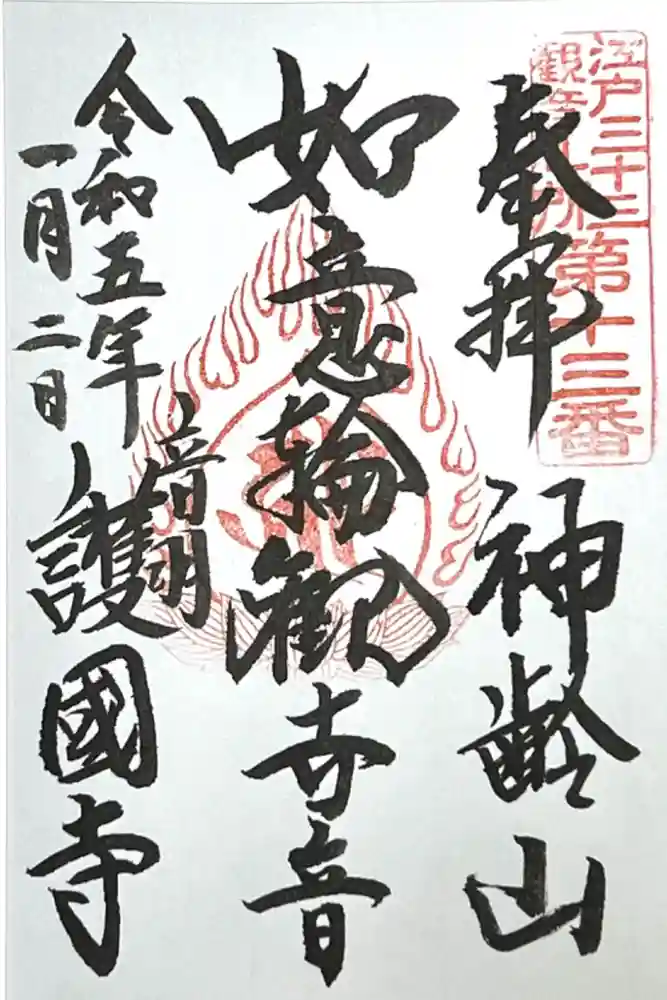 江戸三十三
觀音札所
第十三番
奉拝
神齢山
如意輪觀世音
令和五年
一月二日
音羽
護國寺